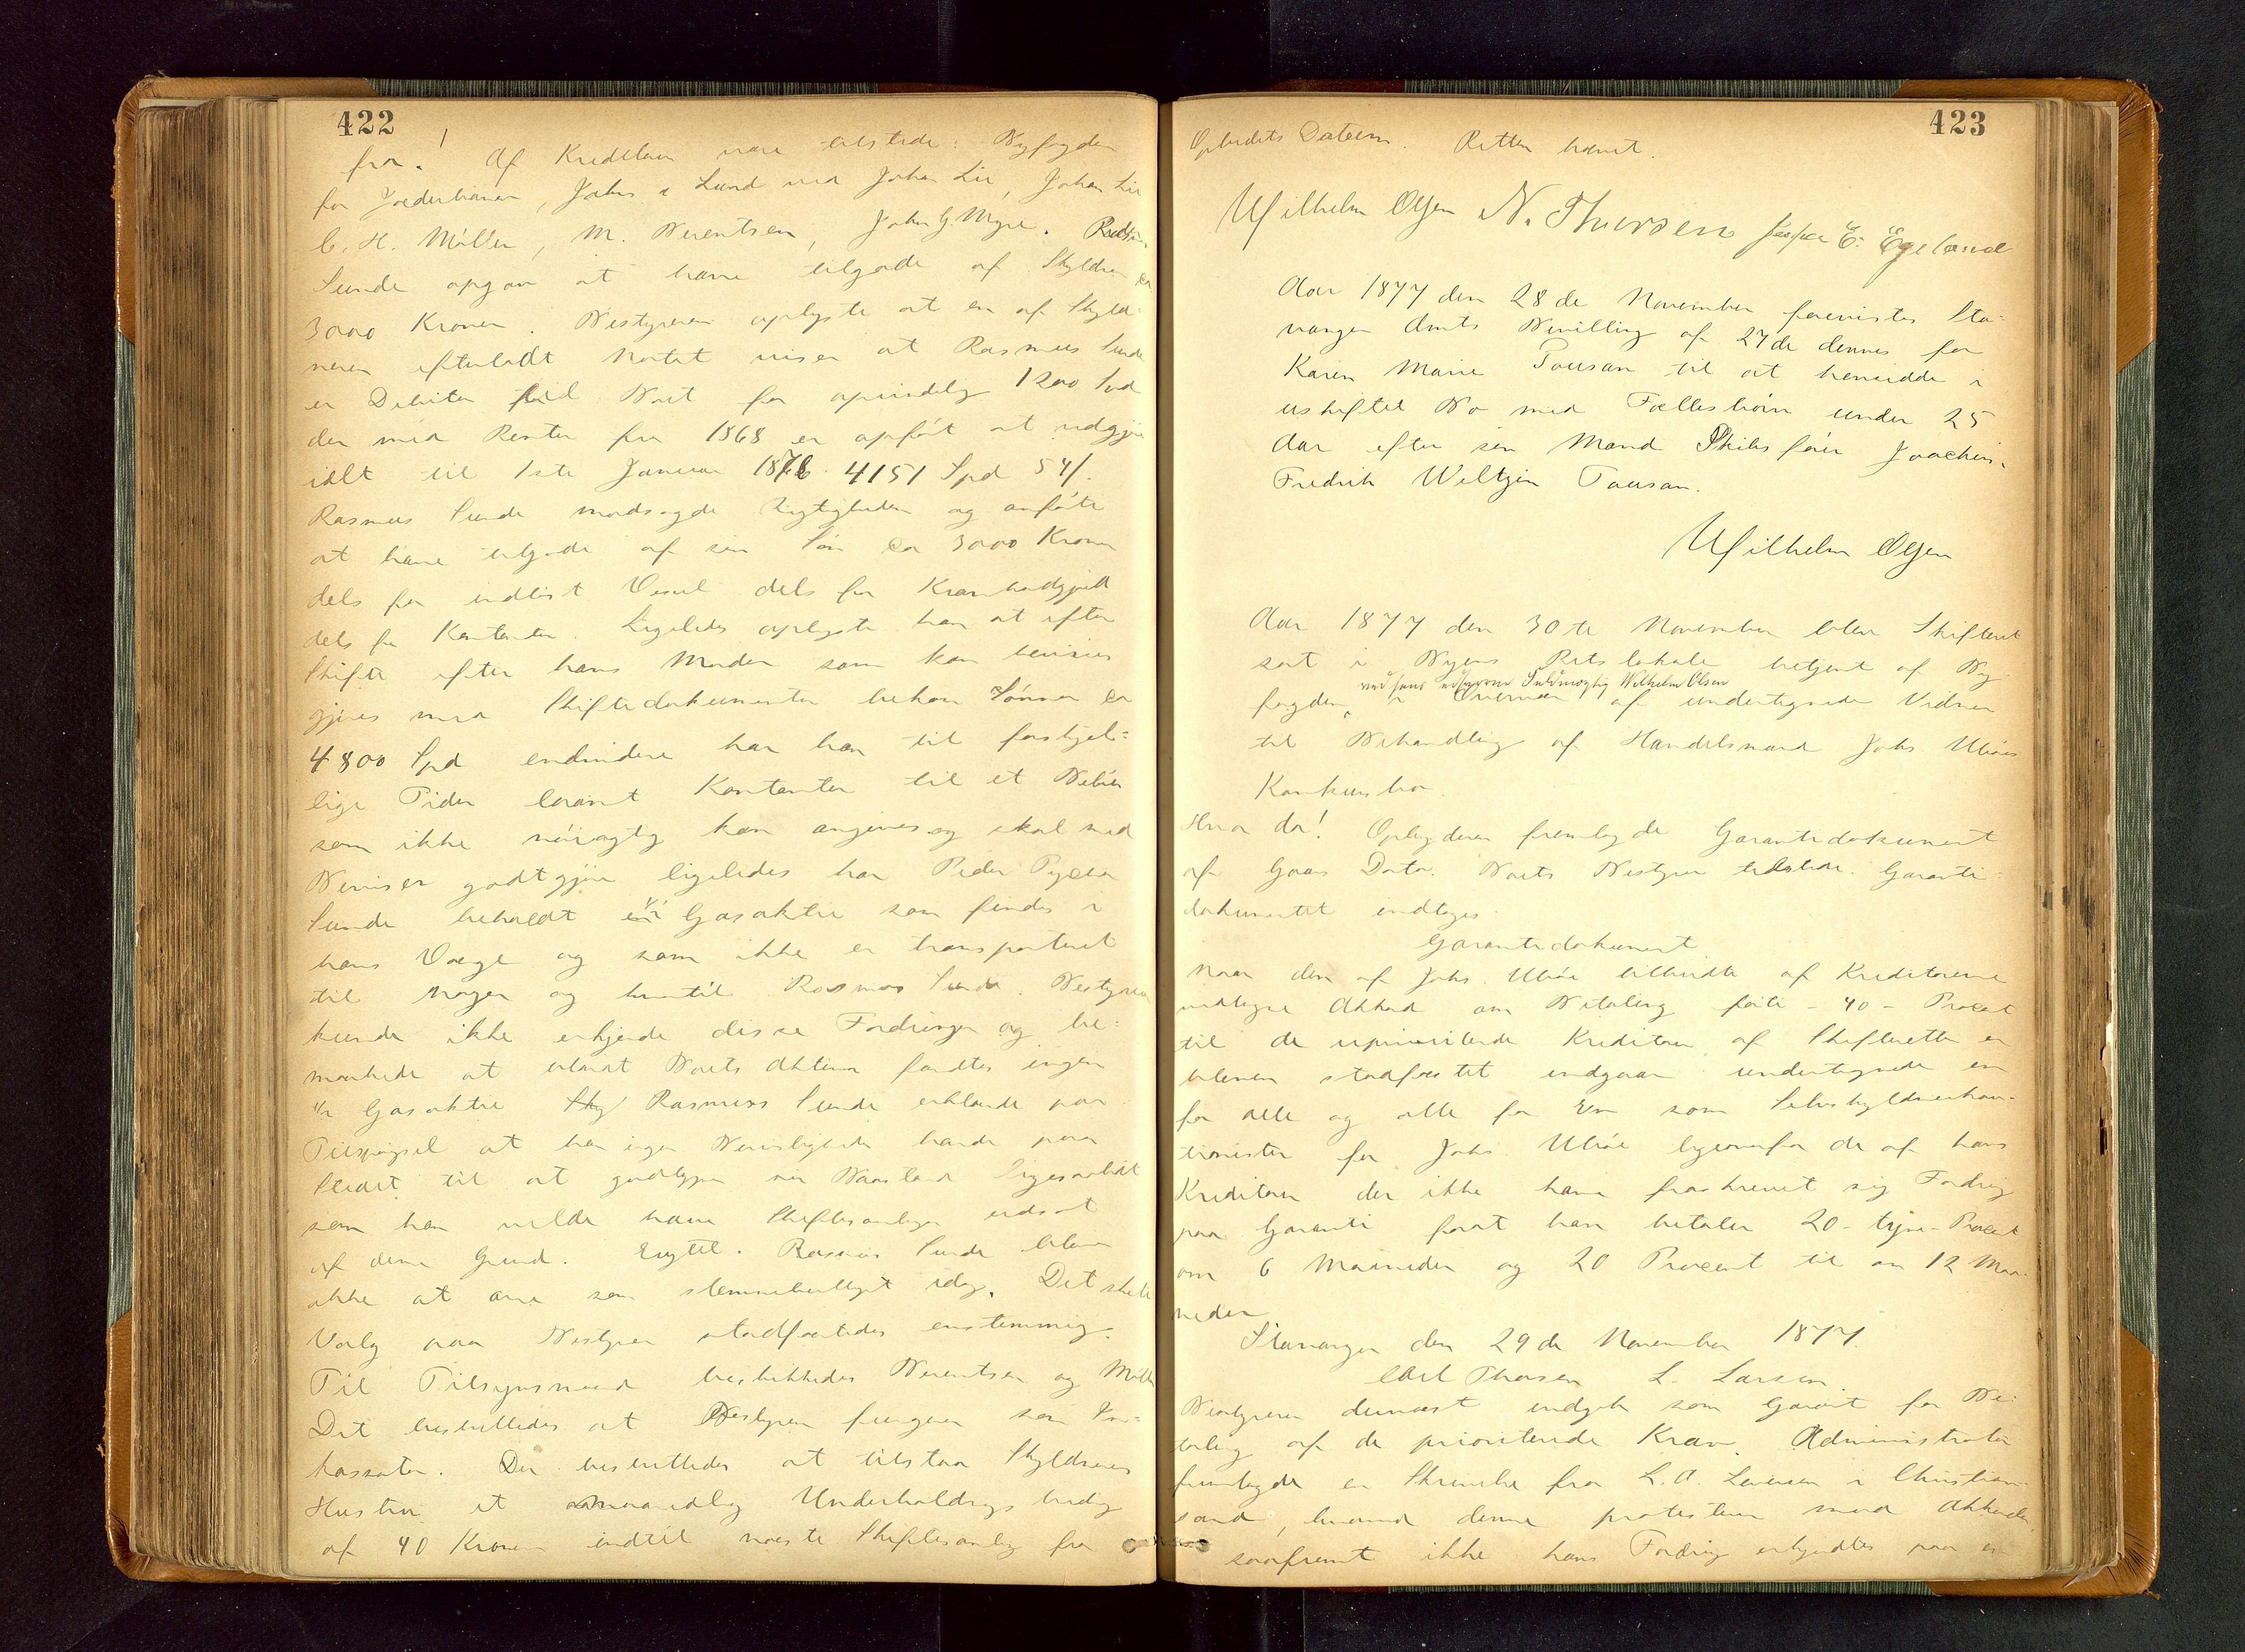 422
fra. Af Kreditorer vare tilstede: Byfogden
for Jæderbanen, Johs i Lund ved Johan Lie, Johan Lie
C. H. Møller, M. Berentsen, John G. Myre. Rasmus
Sunde opgav at have tilgode af Skyldneren ca
3000 Kroner. Bestyreren oplyste at en af Skyld-
neren efterladt Notat viser at Rasmus Sunde
er Debitor til Boet for oprindelig 1200 Spd
der med Renter fra 1868 er opført at udgjøre
ialt til 1ste Januar 1876 4151 Spd 54/.
Rasmus Sunde modsagde Rigtigheden og anførte
at have tilgode af sin Søn ca 3000 Kroner
dels for indløst Vexel dels for Krambodgjæld
dels for Kontanter. Ligeledes oplyste han at efter
Skifte efter hans Moder som kan bevises
gjøres med Skiftedokumenter bekom Sønnen ca
4800 Spd endvidere har han til forskjel-
lige Tider laant Kontanter til et Beløb
som ikke nøiagtig kan angives og skal ved
Beviser godtgjøre ligeledes har Peder
Sunde beholdt 1/2 Gasaktie som findes i
hans Værge og som ikke er transporteret
til nogen og hvortil Rasmus Sunde. Bestyreren
kunde ikke erkjende disse Fordringer og be-
mærkede at blandt Boets Aktiva fandtes ingen
1/2 Gasaktie Rasmus Sunde erklærede paa
Tilspørgsel at han ingen Bevisligheder havde paa
Stedet til at godtgjøre sin Paastand ligesaalidt
som han vilde have Skiftesamlingen udsat
af denne Grund. Eragtet. Rasmus Sunde bliver
ikke at anse som stemmeberettiget idag. Det skete
Valg paa Bestyrer stadfæstedes enstemmig.
Til Tilsynsmænd beskikkedes Berentsen og Møller
Det besluttedes at Bestyreren fungerer som In-
kassator. Der besluttedes at tilstaa Skyldnerens
Hustru et maanedlig Underholdnings bidrag
af 40 Kroner indtil næste Skiftesamling fra
423
Opbudets Datum. Retten hævet.
Wilhelm Olsen N. Thorsen E. Egeland
Aar 1877 den 28de November foreviistes Sta-
vanger Amts Bevilling af 27de dennes for
Karen Marie Pousan til at hensidde i
uskiftet Bo med Fællesbørn under 25
Aar efter sin Mand Skibsfører Joachim
Fredrik Weltzin Tousan.
Wilhelm Olsen
Aar 1877 den 30te November blev Skifteret
sat i Byens Retslokale betjent af By-
ved hans edsvorne Fuldmægtig Wilhelm Olsen
fogden i Overvær af undertegnede Vidner
til Behandling af Handelsmand Johs Ubøes
Konkursbo.
Hvor da! Opbyderen fremlagde Garantidokument
af Gaars Dato. Boets Bestyrer tilstede. Garanti-
dokumentet indtages:
Garantidokument
Naar den af Johs. Ubøe tilbudte af Kreditorerne
vedtagne Akkord om Betaling førti - 40 - Procent
til de uprioriterede Kreditorer af Skifteretten er
bleven stadfæstet indgaar undertegnede en
for alle og alle for En som Selvskyldnerkau-
tionister for Johs. Ubøe ligeoverfor de af hans
Kreditorer der ikke have fraskrevet sig Fordring
paa Garanti for at han betaler 20 - tyve - Procent
om 6 Maaneder og 20 Procent til om 12 Maa-
neder
Stavanger den 29de November 1877.
Carl Thorsen L. Larsen
Bestyreren dernæst indgik som Garant for Be-
taling af de prioriterede Krav. Administrator
fremlagde en Skrivelse fra L. A. Larsen i Christian-
sand, hvorved denne protesterer mod Akkorden
saafremt ikke hans Fordring erkjendtes paa en